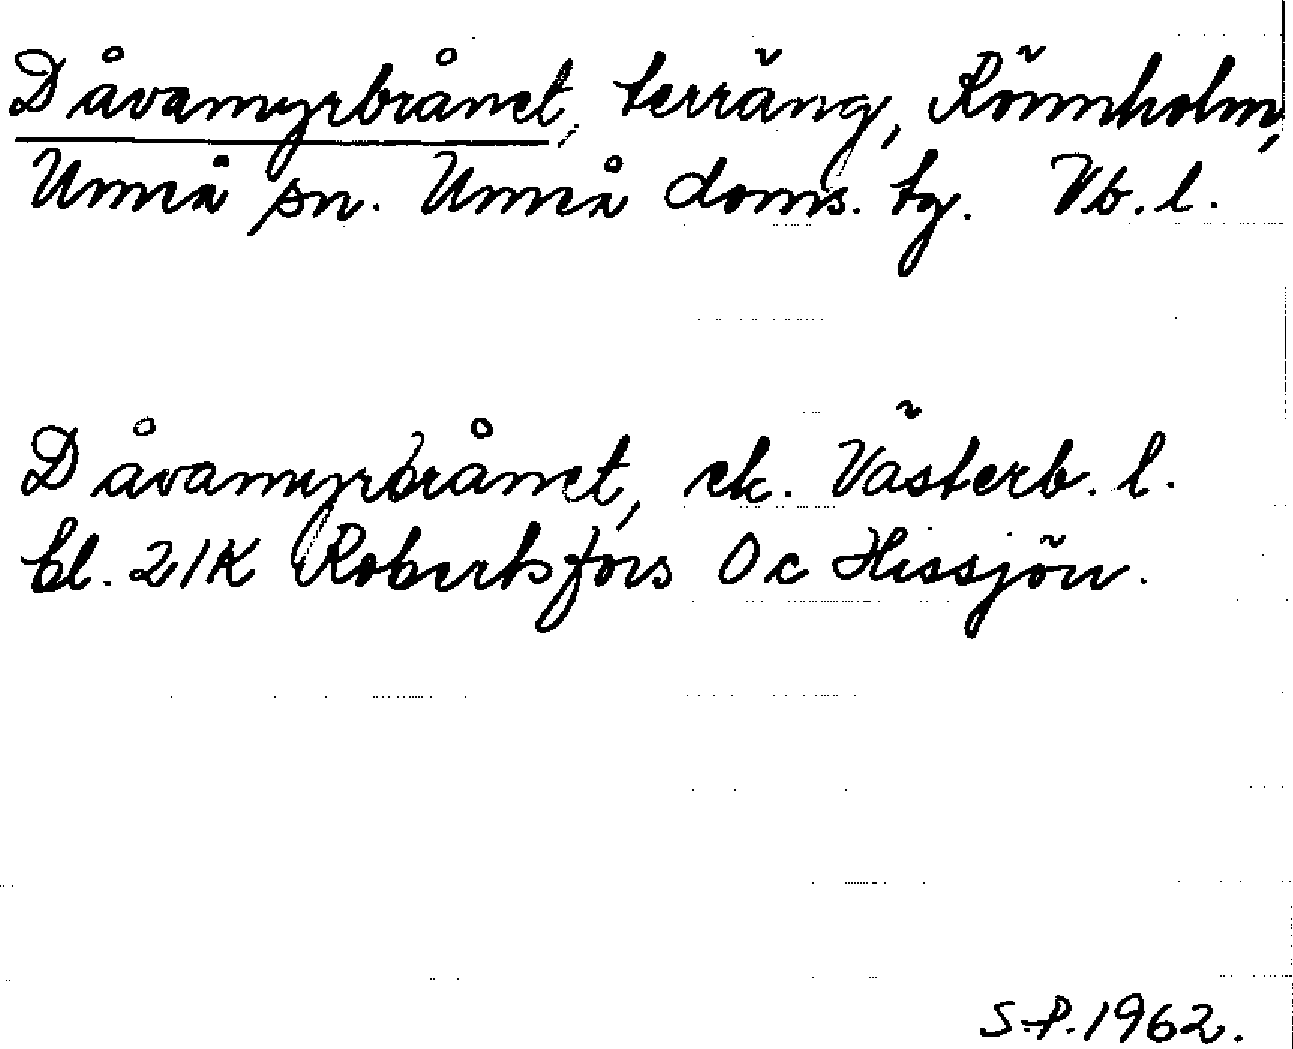 Dåvamyrbrånet, terräng, Rönnholm,
Umeå sn. Umeå doms. tg. Vb. l.
Dåvamyrbrånet, ek. Västerb. l.
bl. 21K Robertsfors 0c Hissjön.
S.P. 1962.